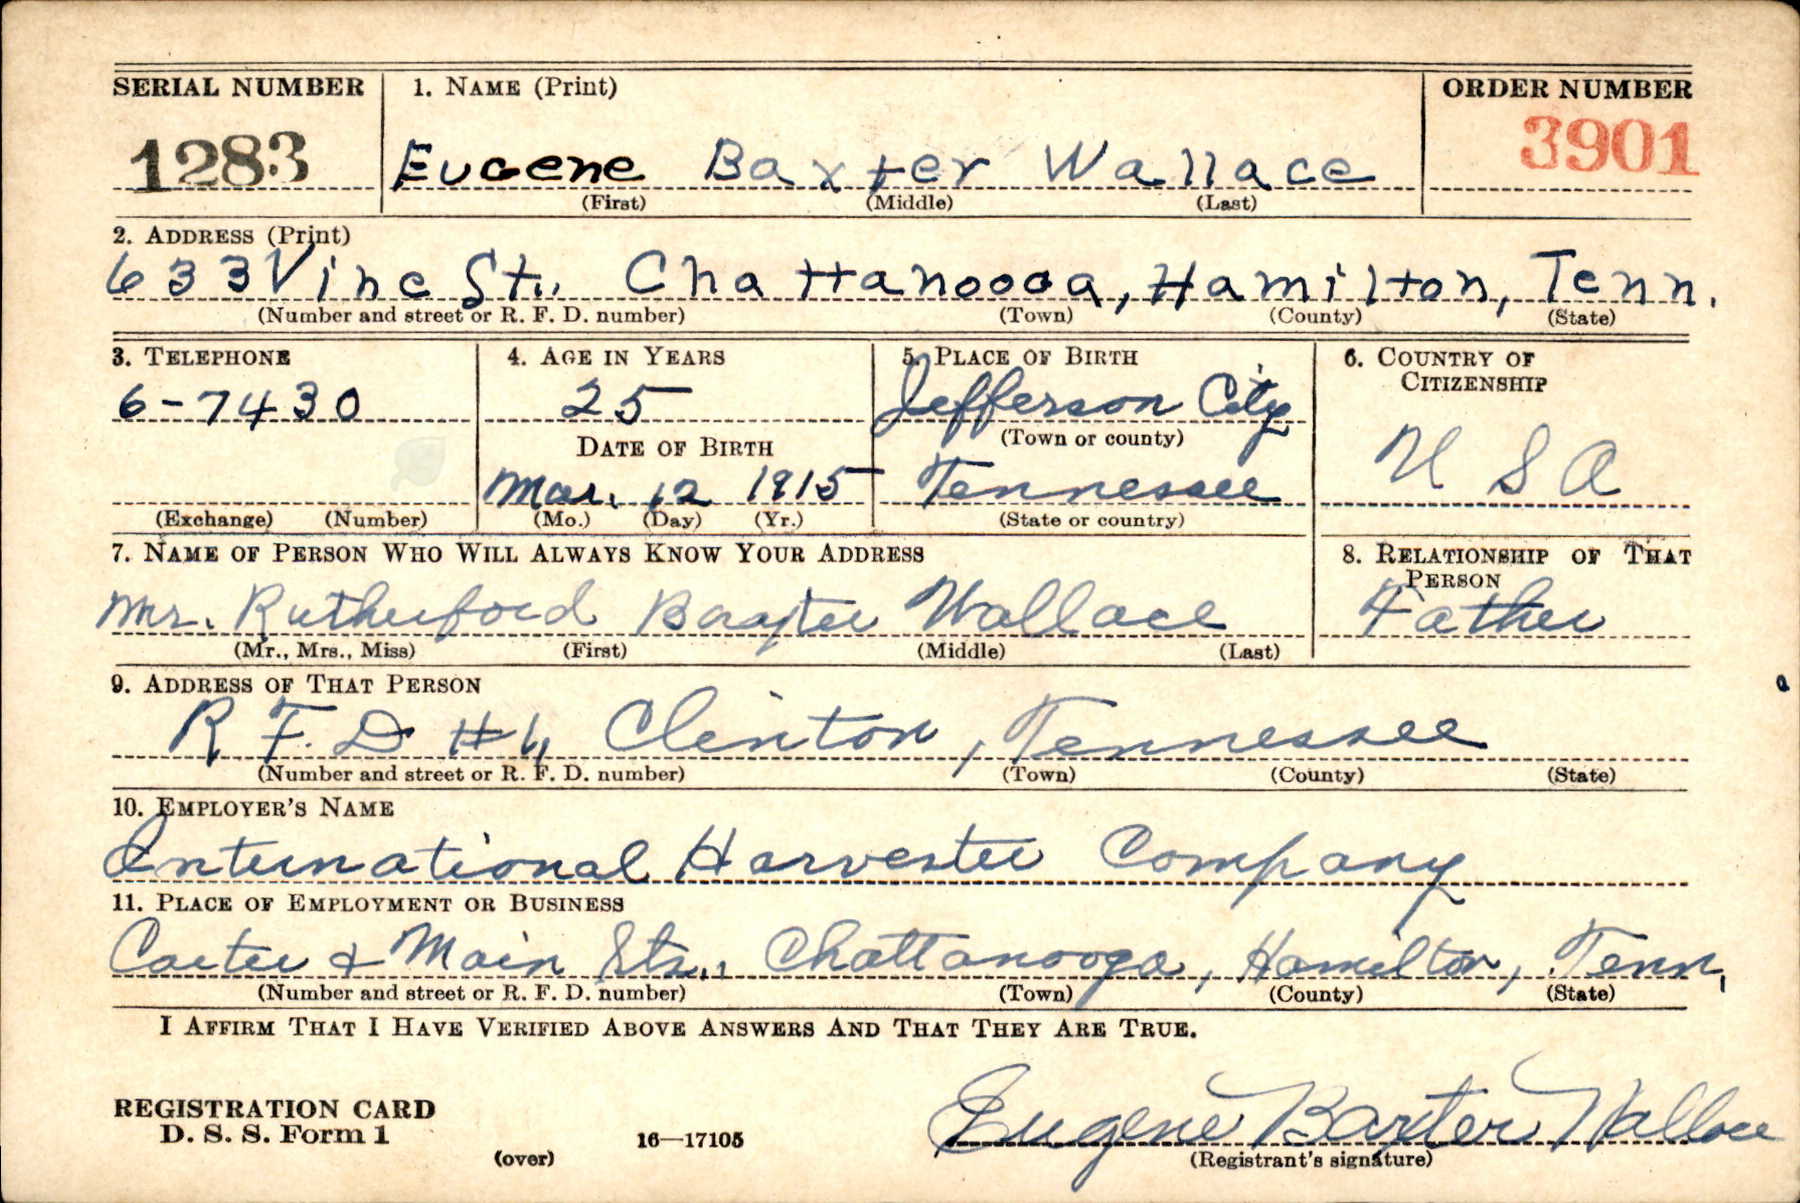 SERIAL NUMBER 1. NAME (Print) ORDER NUMBER
1283 Eugene Baxter Wallace 3901
(First) (Middle) (Last)
2. ADDRESS (Print)
633 Vine St., Chattanooga, Hamilton, Tenn.
(Number and street or R. F. D. number) (Town) (County) (State)
3. TELEPHONE 4. AGE IN YEARS 5. PLACE OF BIRTH 6. COUNTRY OF
CITIZENSHIP
6-7430 25 Jefferson City
DATE OF BIRTH (Town or county)
Mar. 12 1915 Tennessee U S A
(Exchange) (Number) (Mo.) (Day) (Yr.) (State or country)
7. NAME OF PERSON WHO WILL ALWAYS KNOW YOUR ADDRESS 8. RELATIONSHIP OF THAT
PERSON
Mr. Rutherford Baxter Wallace Father
(Mr., Mrs., Miss) (First) (Middle) (Last)
9. ADDRESS OF THAT PERSON
R F. D #1, Clinton, Tennessee
(Number and street or R. F. D. number) (Town) (County) (State)
10. EMPLOYER'S NAME
International Harvester Company
11. PLACE OF EMPLOYMENT OR BUSINESS
Carter & Main Sts., Chattanooga, Hamilton, Tenn.
(Number and street or R. F. D. number) (Town) (County) (State)
I AFFIRM THAT I HAVE VERIFIED ABOVE ANSWERS AND THAT THEY ARE TRUE.
REGISTRATION CARD
D. S. S. Form 1 16—17105 Eugene Baxter Wallace
(over) (Registrant's signature)